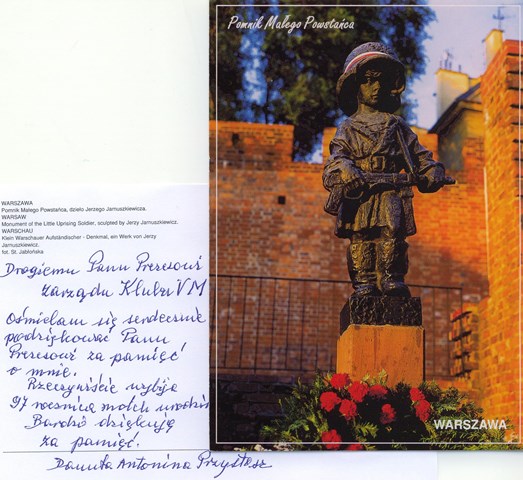 Pomnik Małego Powstańca
WARSZAWA
WARSZAWA
Pomnik Małego Powstańca, dzieło Jerzego Jarnuszkiewicza.
WARSAW
Monument of the Little Uprising Soldier, sculpted by Jerzy Jarnuszkiewicz.
WARSCHAU
Klein Warschauer Aufständischer - Denkmal, ein Werk von Jerzy
Jarnuszkiewicz.
fot. St. Jabłońska
Drogiemu Panu Prezesowi
zarządu Klubu VM
Ośmielam się serdecznie
podziękować Panu
Prezesowi za pamięć
o mnie.
Rzeczywiście wybija
97 rocznica moich urodzin
Bardzo dziękuję
za pamięć.
Danuta Antonina Przystasz